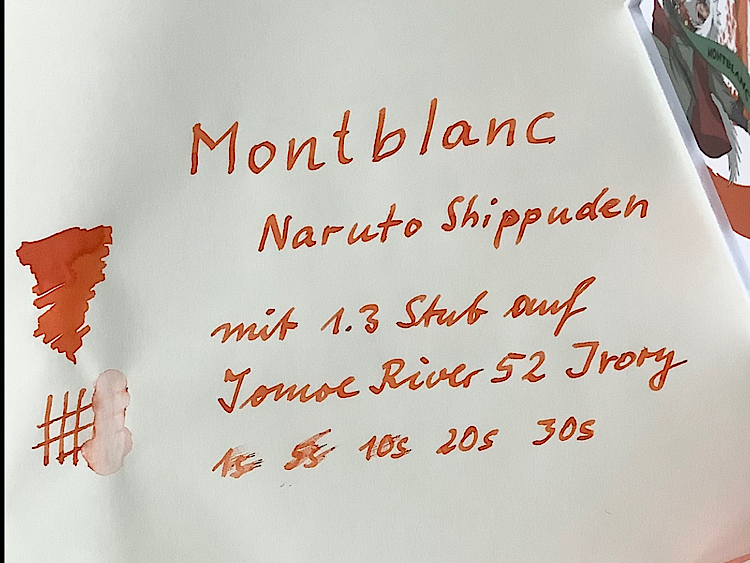 Montblanc
Naruto Shippuden
mit 1.3 Stub auf
Tomoe River 52 Ivory
1s 5s 10s 20s 30s
MONTBLANC